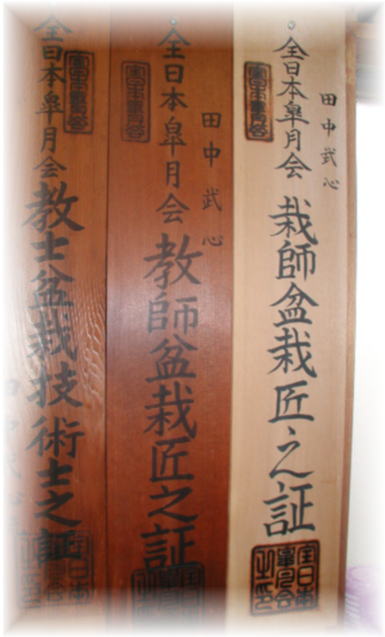 田中武心
全日本皐月会 栽師盆栽匠之証
全日本皐月会之印
田中武心
全日本皐月会 教師盆栽匠之証
全日本皐月会 教士盆栽技術士之証
田中武心